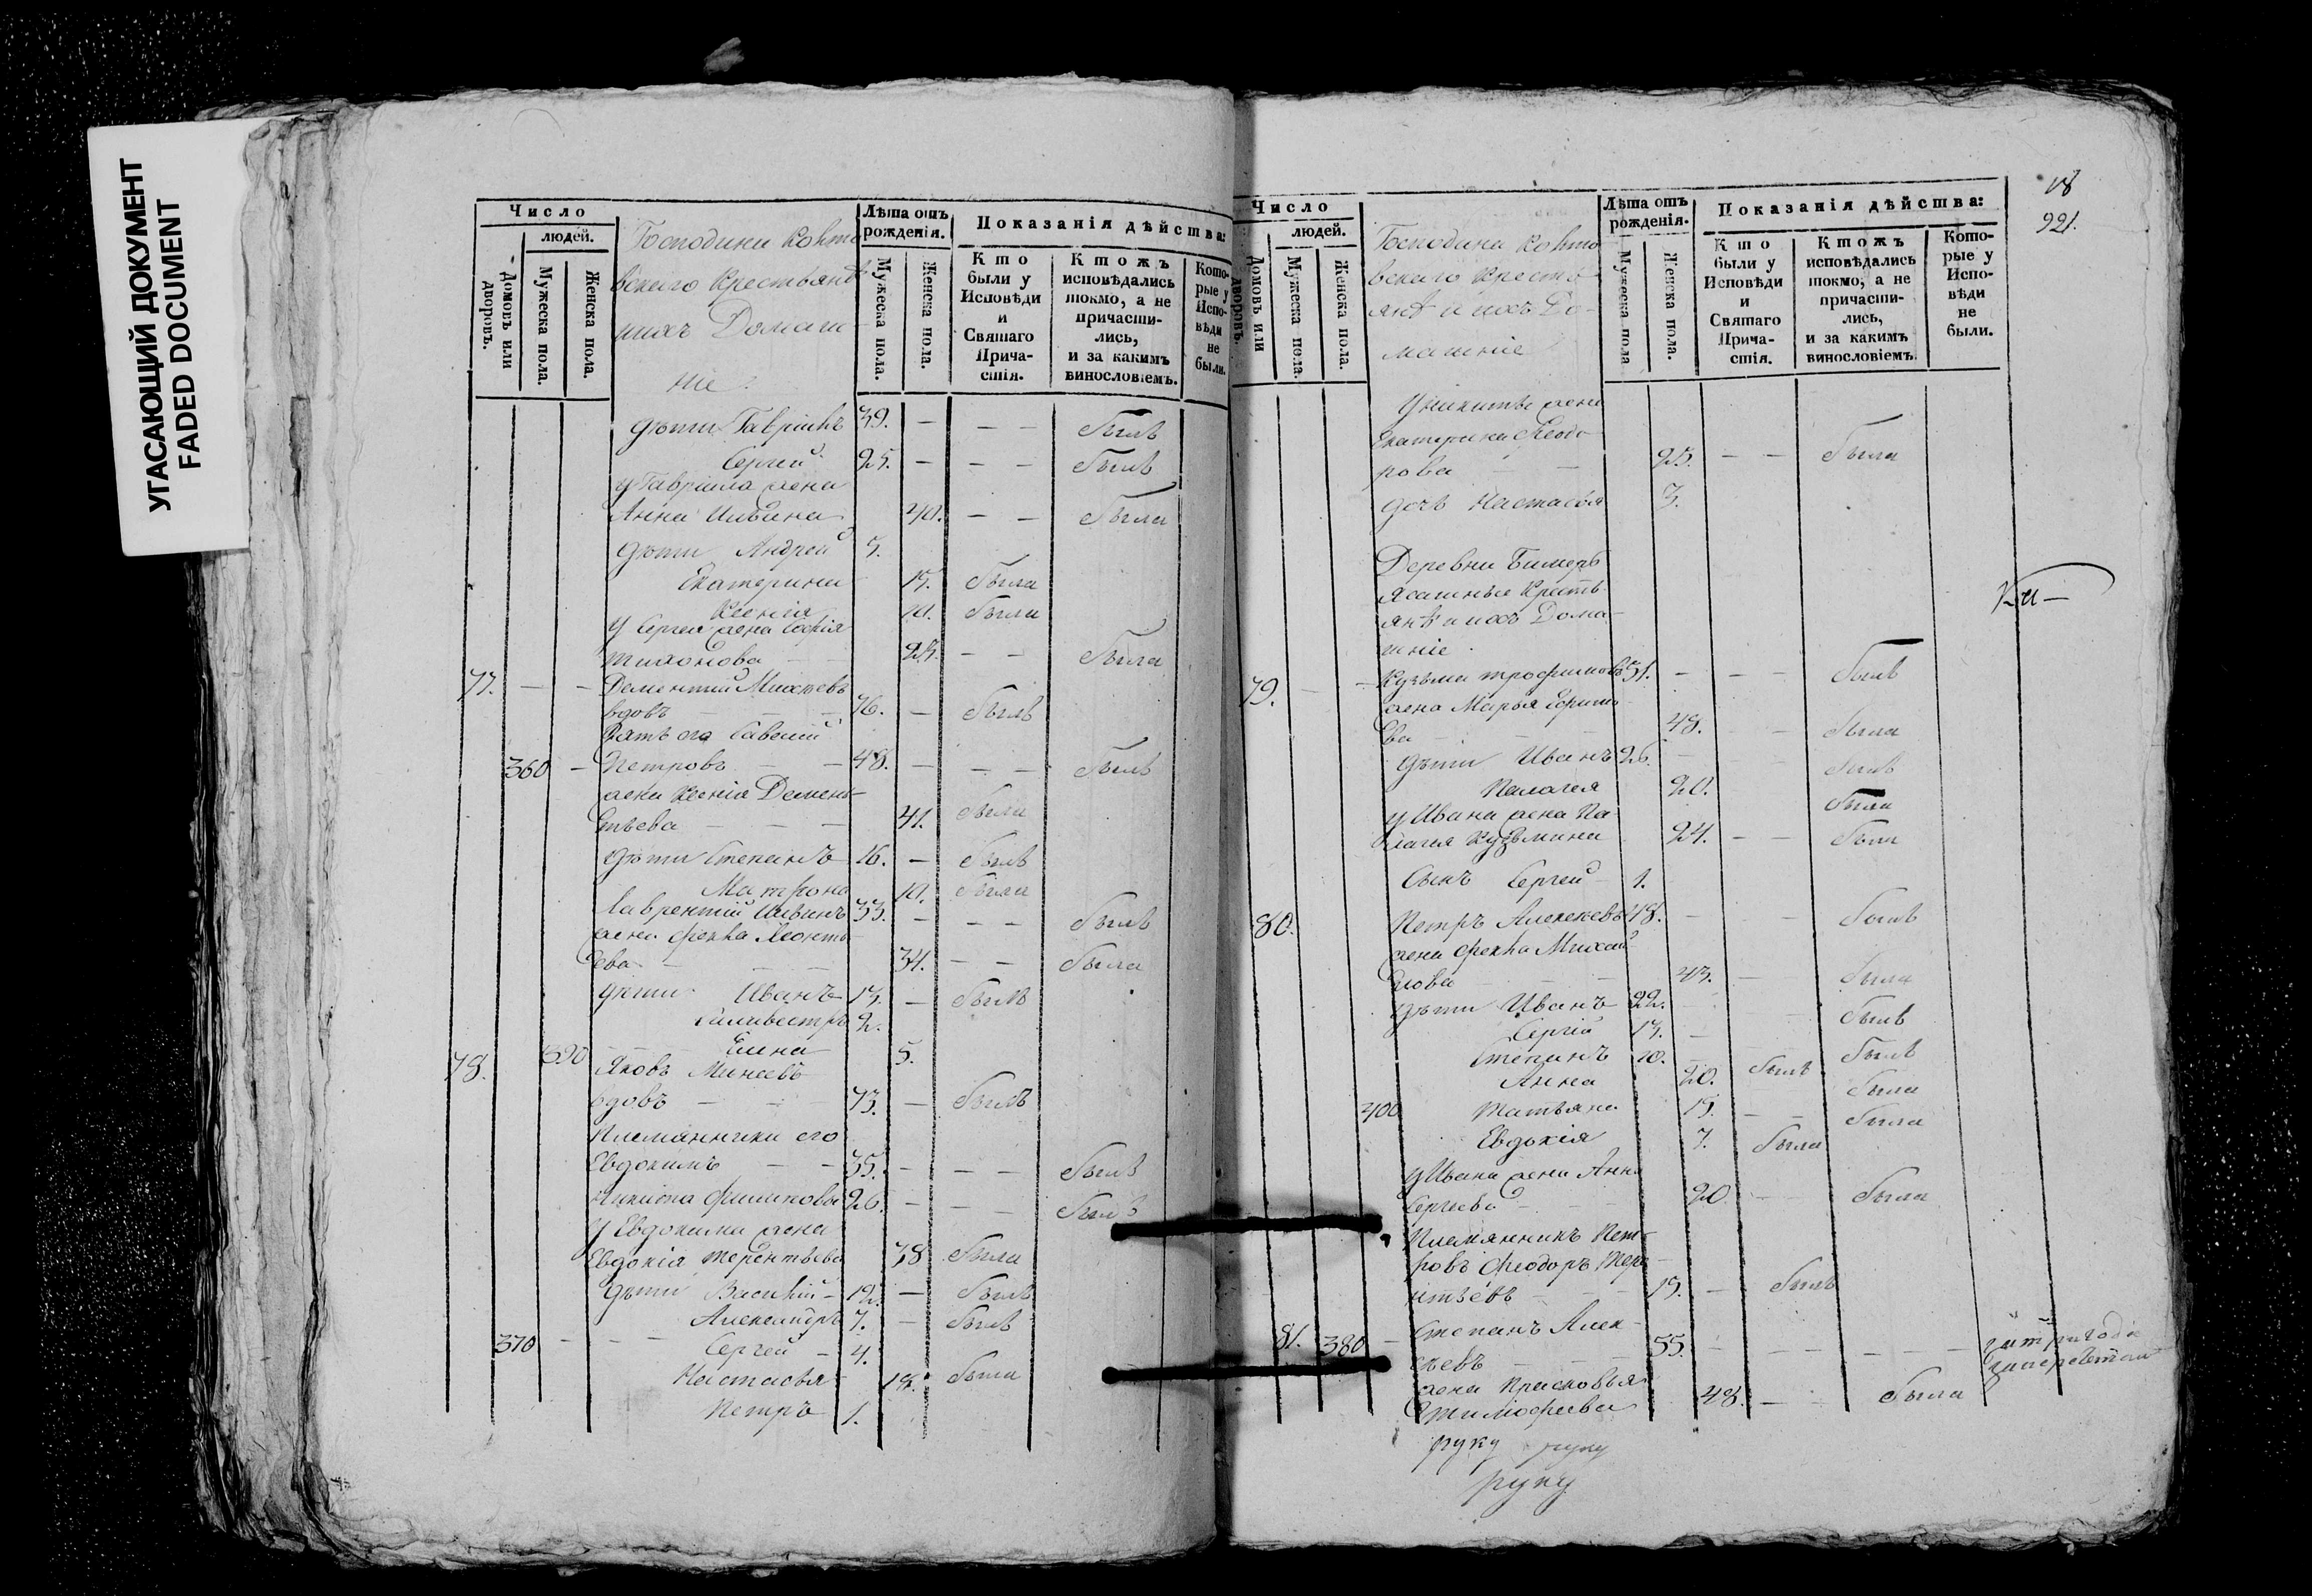 УГАСАЮЩИЙ ДОКУМЕНТ
FADED DOCUMENT
Число
людей.
Домовъ или дворовъ.
Мужеска пола.
Женска пола.
Господина
вскаго Крестьянѣ
ихъ Домаш
ніе
Лѣта отъ рожденія.
Мужеска пола.
Женска пола.
Показанія дѣйства:
Кто были у Исповѣди и Святаго Прича-стія.
Ктожъ исповѣдались токмо, а не причасти-лись, и за какимъ винословіемъ.
Кото-рые у Испо-вѣди не были.
дѣти Гавріилъ 39. — — — былъ
Сергей 25. — — — былъ
у Гавріила жена
Анна Ильина 40. — — была
дѣти Андрей 5.
Екатерина 15. была
Ксенія 10. была
у Сергея жена Софія
Тихонова — — была
77. — — Дементій Михѣевъ
вдовъ — — — 76. — былъ
Зять его Савелій
360 — Петровъ — — 48. — — — былъ
жена Ксенія Демен-
тьева — — — 41. была
дѣти Степанъ 16. — былъ
Матрона 10. была
Лаврентій Ильинъ 33. — — — былъ
жена Фекла Леонть-
ева — — — 34. — — была
дѣти Иванъ 13. — былъ
Силивестръ 2.
390 — — Елена 5.
78. Яковъ Минеевъ
вдовъ — — — 73. — былъ
Племянники его
Евдокимъ — — 35. — — — былъ
Никита Филиповы 26. — — — былъ
у Евдокима жена
Евдокія Терентьева 38 была
дѣти Василій — 12. — былъ
Александръ 7. — былъ
370 — — — Сергей — 4.
Настасья — 18. была
Петръ 1.
18
221.
Число
людей.
Домовъ или дворовъ.
Мужеска пола.
Женска пола.
Господина
вскаго Кресть
янѣ и ихъ До-
машніе
Лѣта отъ рожденія.
Мужеска пола
Женска пола.
Показанія дѣйства:
Кто были у Исповѣди и Святаго Прича-стія.
Ктожъ исповѣдались токмо, а не причасти-лись, и за какимъ винословіемъ.
Кото-рые у Испо-вѣди не были.
у Никиты жена
Екатерина Феодо-
рова — — 25. — — была
дочь Настасья 3.
Деревни Бимеръ
Ясашные Кресть-
янѣ и ихъ Дома-
шніе.
79. — — Кузьма Трофимовъ 51. — — — былъ
жена Марья
ва — — — 48. — — была
дѣти Иванъ 26. — былъ
Пелагея 20. была
у Ивана жена Па-
лагея Кузьмина 24. — — была
Сынъ Сергей 1.
80. Петръ Алексѣевъ 48. — — былъ
жена Фекла Михай-
лова — — 43. — была
дѣти Иванъ 22. — — былъ
Сергій 13. — былъ
Степанъ 10. — былъ
Анна 20. была
400 Татьяна 15. — — была
Евдокія 7. была
у Ивана жена Анна
Сергеева — — 20. — была
Племянникъ Пет-
ровъ Феодоръ Тере-
нтьевъ — — — 19. — былъ
81. 380 — Степанъ Алек-
сѣевъ — — — 55. — — — —
жена Прасковья
Тимофеева 48. — была
руку руку
руку